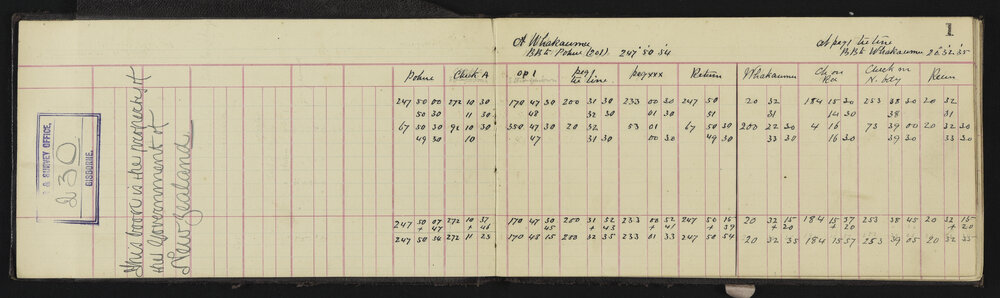 1
At Whakaumu
BBt Pohue (201) 247° 50' 54
At peg 1 tie line
BBt Whakaumu 20° 32' 35
L & SURVEY OFFICE,
230
GISBORNE.
This book is the property of
the Government of
New Zealand
Pohue Check A op 1 peg tie line peg xxx Return Whakaumu Ch on Rd Check on N. bdy Retn
247 50 00 272 10 30 170 47 30 200 31 30 233 00 30 247 50 20 32 184 15 30 253 38 30 20 32
50 30 11 30 48 32 30 01 30 51 31 14 30 38 31
67 50 30 92 10 30 350 47 30 20 32 53 01 67 50 30 200 32 30 4 16 73 39 00 20 32 30
49 30 10 47 31 30 00 30 49 30 33 30 16 30 39 30 33 30
247 50 07 272 10 37 170 47 30 200 31 52 233 00 52 247 50 15 20 32 15 184 15 37 253 38 45 20 32 15
+ 47 + 46 45 + 43 + 41 + 39 + 20 + 20 + 20
247 50 54 272 11 23 170 48 15 200 32 35 233 01 33 247 50 54 20 32 35 184 15 57 253 39 05 20 32 35